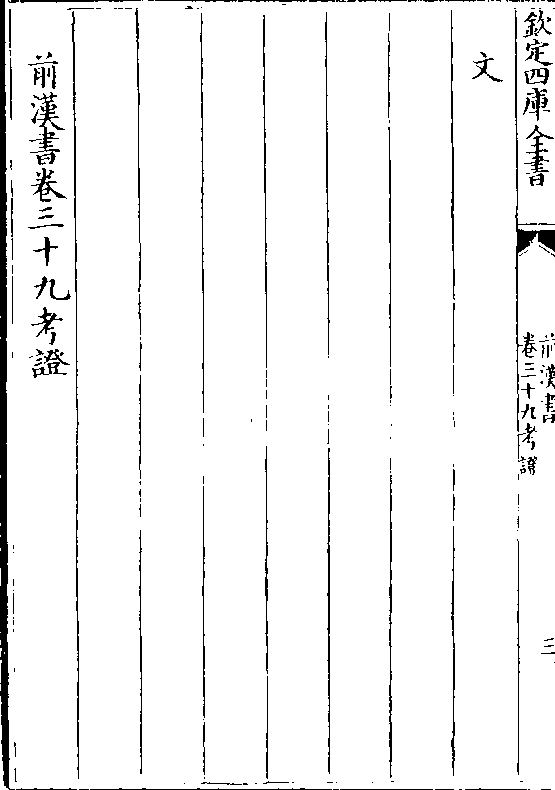 欽定四庫全書
前漢書
卷三十九考證
三
文
前漢書卷三十九考證